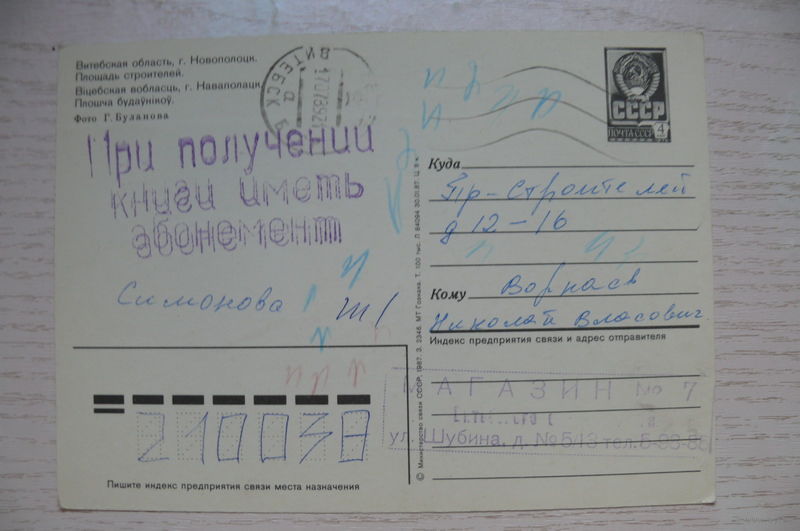 Витебская область, г. Новополоцк.
Площадь строителей.
Віцебская вобласць, г. Наваполацк
Плошча будаўнікоў.
Фото Г. Буланова
ВИТЕБСК
СССР
ПОЧТА СССР 4
При получении
книги иметь
абонемент
Симонова
Куда
Пр-Строителей
д 12-16
Кому
Николай Власович
Индекс предприятия связи и адрес отправителя
МАГАЗИН № 7
ул. Шубина, д. №5/13 тел. 6-93-
210038
Пишите индекс предприятия связи места назначения
© Министерство связи СССР, 1987. З. 2346. МТ Гознака. Т. 100 тыс. Л 84094 30.01.87. Ц. 5 к.